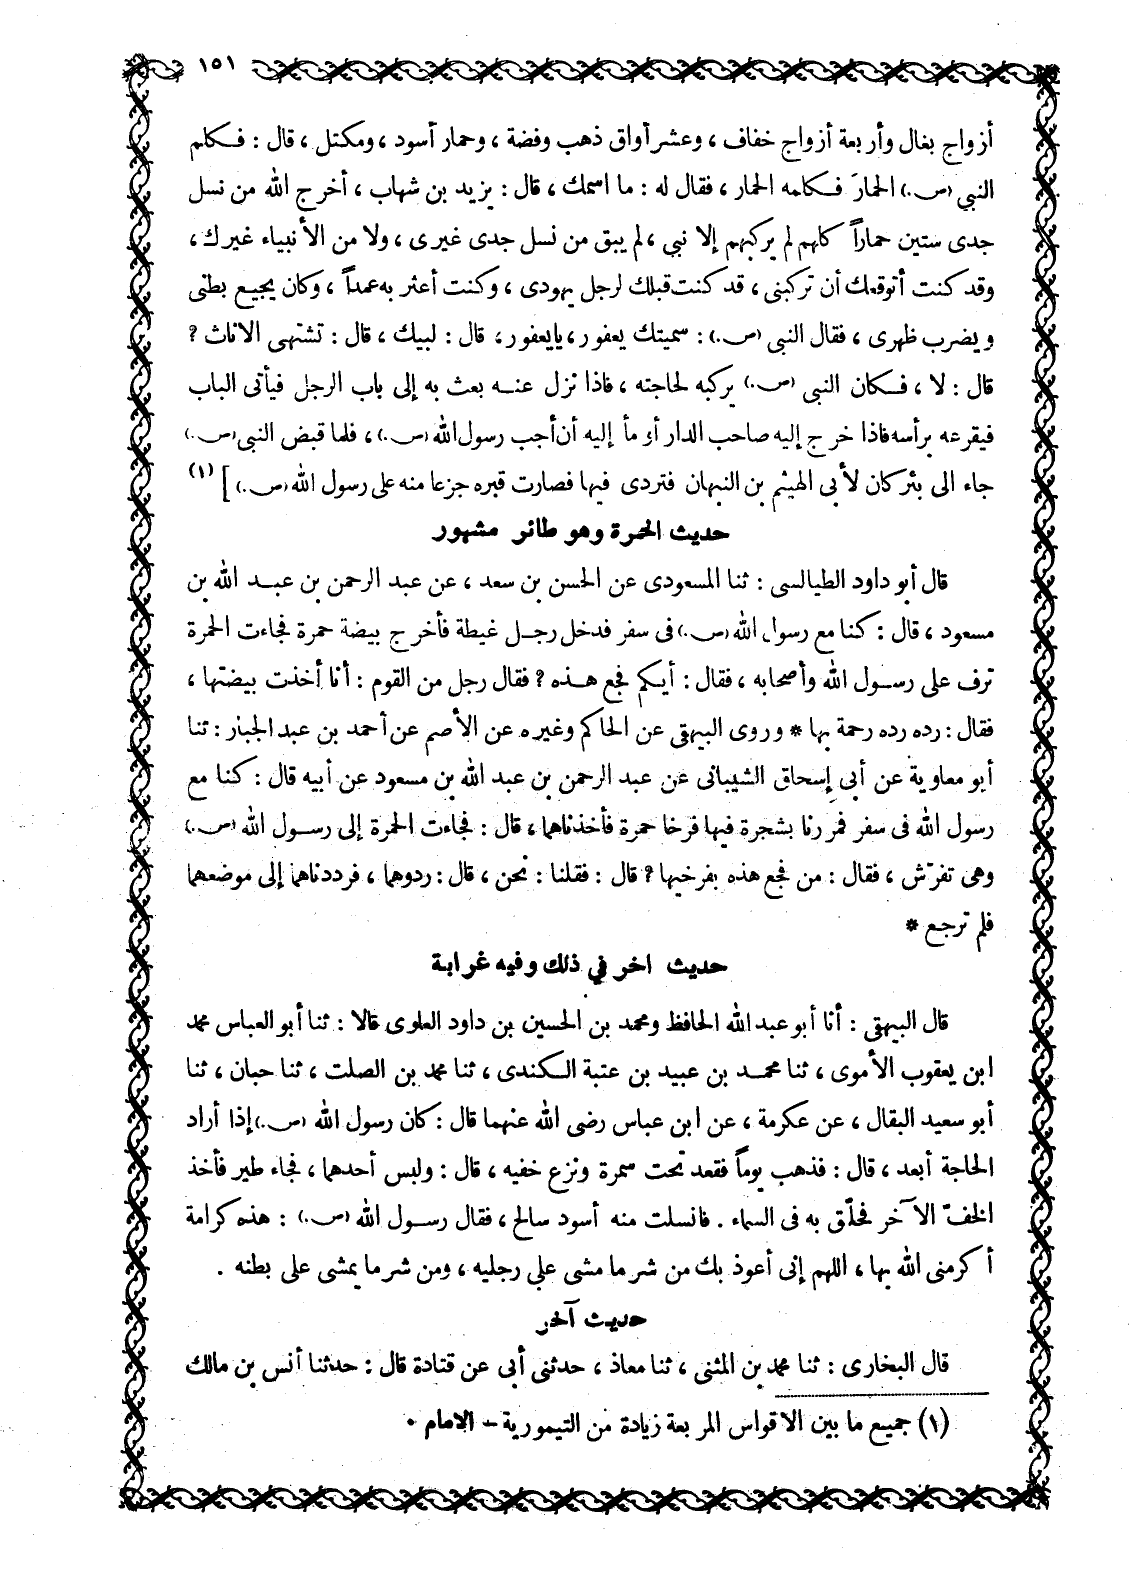 ١٥١
أزواج بغال وأربعة أزواج خفاف ، وعشر أواق ذهب وفضة ، وحمار أسود ، ومكتل ، قال : فكلم
النبي (ص.) الحمارَ فكلمه الحمار ، فقال له : ما اسمك ، قال : يزيد بن شهاب ، أخرج الله من نسل
جدى ستين حماراً كلهم لم يركبهم إلا نبي ، لم يبق من نسل جدى غيرى ، ولا من الأنبياء غيرك ،
وقد كنت أتوقعك أن تركبنى ، قد كنت قبلك لرجل يهودى ، وكنت أعثر به عمداً ، وكان يجيع بطنى
ويضرب ظهرى ، فقال النبى (ص.) : سميتك يعفور ، يايعفور ، قال : لبيك ، قال : تشتهى الاناث ؟
قال : لا ، فكان النبى (ص.) يركبه لحاجته ، فاذا نزل عنه بعث به إلى باب الرجل فيأتى الباب
فيقرعه برأسه فاذا خرج إليه صاحب الدار أومأ إليه أن أجب رسول الله (ص.) ، فلما قبض النبى (ص.)
جاء الى بئر كان لأبى الهيثم بن النبهان فتردى فيها فصارت قبره جزعا منه على رسول الله (ص.) ] (١)
حديث الحمرة وهو طائر مشهور
قال أبو داود الطيالسى : ثنا المسعودى عن الحسن بن سعد ، عن عبد الرحمن بن عبد الله بن
مسعود ، قال : كنا مع رسول الله (ص.) فى سفر فدخل رجل غيطة فأخرج بيضة حمرة فجاءت الحمرة
ترف على رسول الله وأصحابه ، فقال : أيكم فجع هذه ؟ فقال رجل من القوم : أنا أخذت بيضتها ،
فقال : رده رده رحمة بها * وروى البيهقى عن الحاكم وغيره عن الأصم عن أحمد بن عبد الجبار : ثنا
أبو معاوية عن أبى إسحاق الشيبانى عن عبد الرحمن بن عبد الله بن مسعود عن أبيه قال : كنا مع
رسول الله فى سفر فمررنا بشجرة فيها فرخا حمرة فأخذناهما ، قال : فجاءت الحمرة إلى رسول الله (ص.)
وهى تفرّش ، فقال : من فجع هذه بفرخيها ؟ قال : فقلنا : نحن ، قال : ردوهما ، فرددناهما إلى موضعهما
فلم ترجع *
حديث اخر في ذلك وفيه غرابة
قال البيهقى : أنا أبو عبد الله الحافظ ومحمد بن الحسين بن داود العلوى قالا : ثنا أبو العباس محمد
ابن يعقوب الأموى ، ثنا محمد بن عبيد بن عتبة الكندى ، ثنا محمد بن الصلت ، ثنا حبان ، ثنا
أبو سعيد البقال ، عن عكرمة ، عن ابن عباس رضى الله عنهما قال : كان رسول الله (ص.) إذا أراد
الحاجة أبعد ، قال : فذهب يوماً فقعد تحت سمرة ونزع خفيه ، قال : ولبس أحدهما ، فجاء طير فأخذ
الخفّ الآخر فحلّق به فى السماء . فانسلت منه أسود سالح ، فقال رسول الله (ص.) : هذه كرامة
أكرمنى الله بها ، اللهم إنى أعوذ بك من شر ما مشى على رجليه ، ومن شر ما يمشى على بطنه .
حديث آخر
قال البخارى : ثنا محمد بن المثنى ، ثنا معاذ ، حدثنى أبى عن قتادة قال : حدثنا أنس بن مالك
(١) جميع ما بين الاقواس المربعة زيادة من التيمورية - الامام .